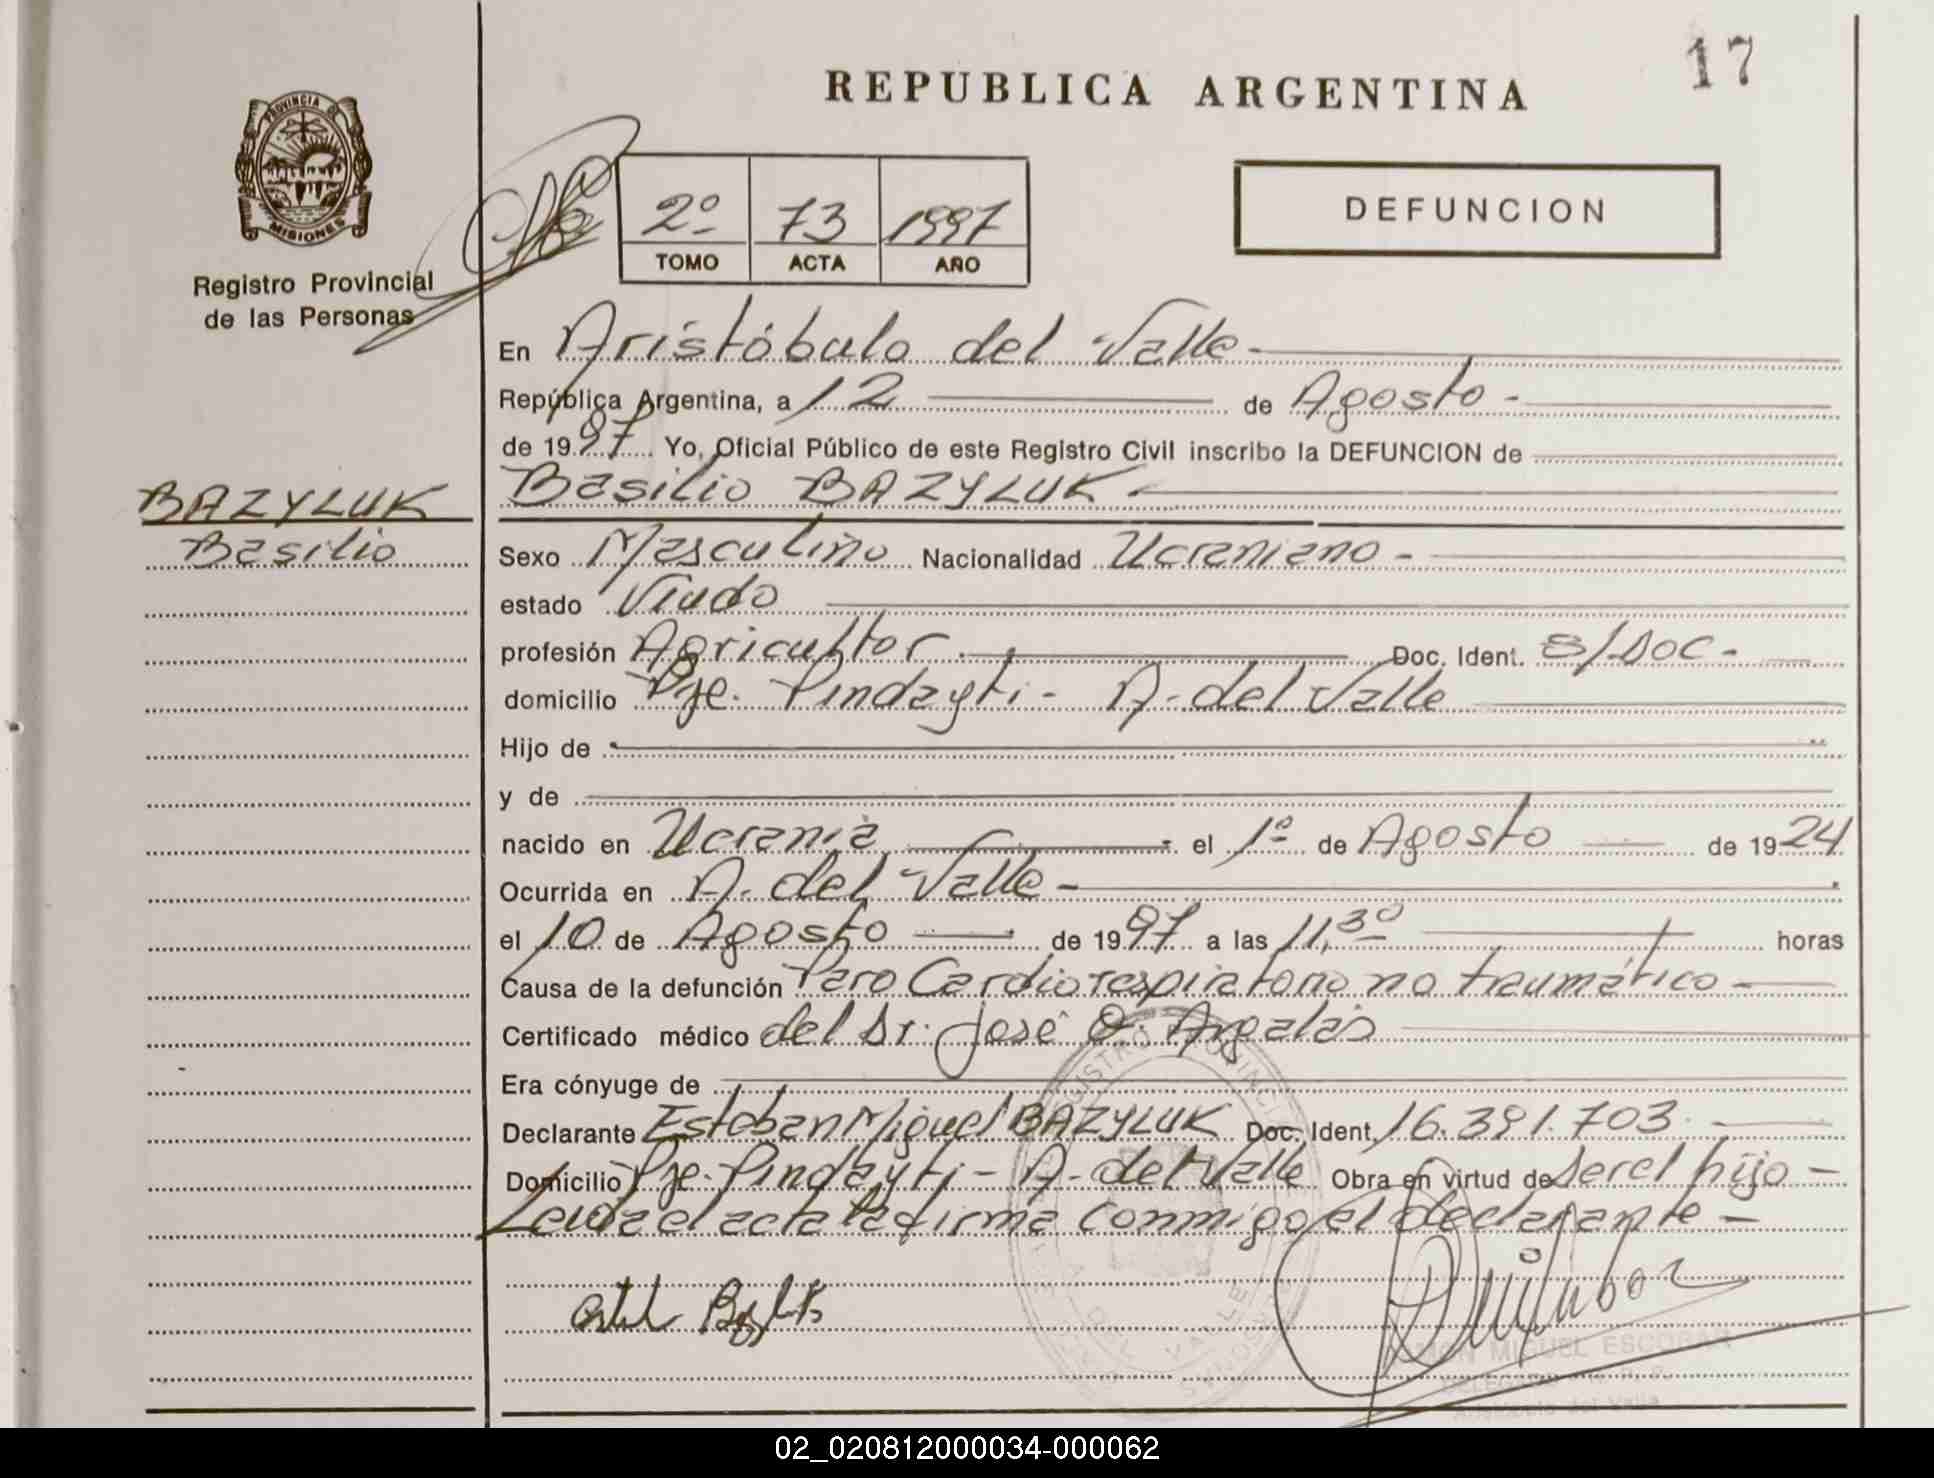 17
REPUBLICA ARGENTINA
PROVINCIA DE
MISIONES
Registro Provincial
de las Personas
2º 73 1997
TOMO ACTA AÑO
DEFUNCION
En Aristóbulo del Valle-
República Argentina, a 12 de Agosto-
de 1997 Yo, Oficial Público de este Registro Civil inscribo la DEFUNCION de
Basilio BAZYLUK-
BAZYLUK
Basilio
Sexo Masculino Nacionalidad Ucraniano-
estado Viudo
profesión Agricultor Doc. Ident. S/Doc-
domicilio Pje. Pindayti- A. del Valle
Hijo de
y de
nacido en Ucrania el 1º de Agosto de 1924
Ocurrida en A. del Valle-
el 10 de Agosto de 1997 a las 11,30 horas
Causa de la defunción Paro Cardiorespiratorio no traumático-
Certificado médico del Dr. José O. Argalás
Era cónyuge de
Declarante Esteban Miguel BAZYLUK Doc. Ident. 16.391.703
Domicilio Pje. Pindayti- A. del Valle Obra en virtud de ser el hijo-
Leida el acta la firma conmigo el declarante-
REGISTRO PROVINCIAL
DEL VALLE
MISIONES
RAMON MIGUEL ESCOBAR
DELEGADO
Aristóbulo del Valle
02_020812000034-000062